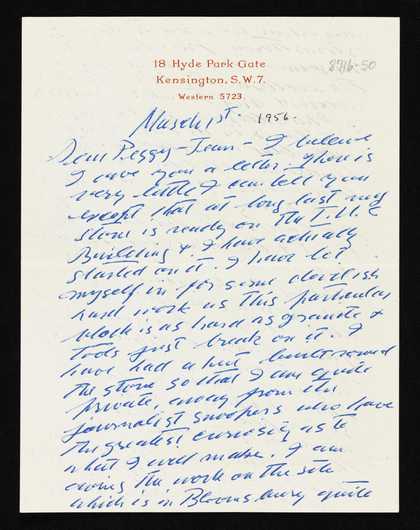 18 Hyde Park Gate
8716-50
Kensington, S.W.7.
Western 5723.
March 1st. 1956.
Dear Peggy-Jean - I believe
I owe you a letter. There is
very little I can tell you
except that at long last my
stone is ready on the T.U.C
Building & I have actually
started on it. I have let
myself in for some devilish
hard work as this particular
block is as hard as granite &
tools just break on it. I
have had a hut built round
the stone so that I am quite
private, away from the
journalist snoopers who have
the greatest curiosity as to
what I will make. I am
doing the work on the site
which is in Bloomsbury quite